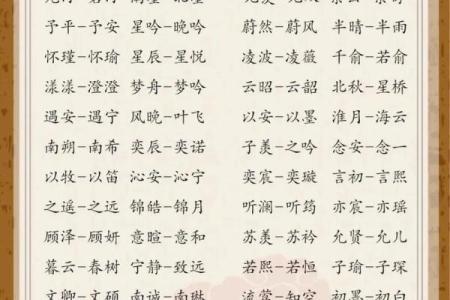 予平-予安 星吟-晚吟 蔚然-蔚风 半晴-半雨
怀瑾-怀瑜 星辰-星悦 凌波-凌薇 千俞-若俞
漾漾-澄澄 梦舟-梦吟 云昭-云韶 北秋-星桥
遇安-遇宁 风晚-叶飞 以安-以墨 淮月-海云
南朔-南希 奕辰-奕诺 子羡-之吟 念安-念一
以牧-以笛 沁安-沁宁 奕宸-奕璇 言初-言熙
之遥-之远 锦皓-锦月 听澜-听筠 亦宸-亦瑶
顾泽-顾妍 意暄-意和 苏羡-苏衿 允贤-允儿
暮云-春树 宁静-致远 若熙-若恒 子瑜-子琛
文卿-文硕 南诚-南琳 流萤-知空 初墨-初白